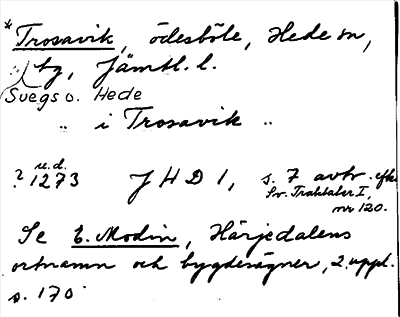 *Trosavik, ödesböle, Hede sn,
" by, Jämtl. l.
Svegs o. Hede
" i Trosavik "
? u.d. 1273 JHD 1, s. 7 avtr. efter
Sv. Traktater I,
nr 120.
Se E. Modin, Härjedalens
ortnamn och bygdesägner, 2. uppl.
s. 170